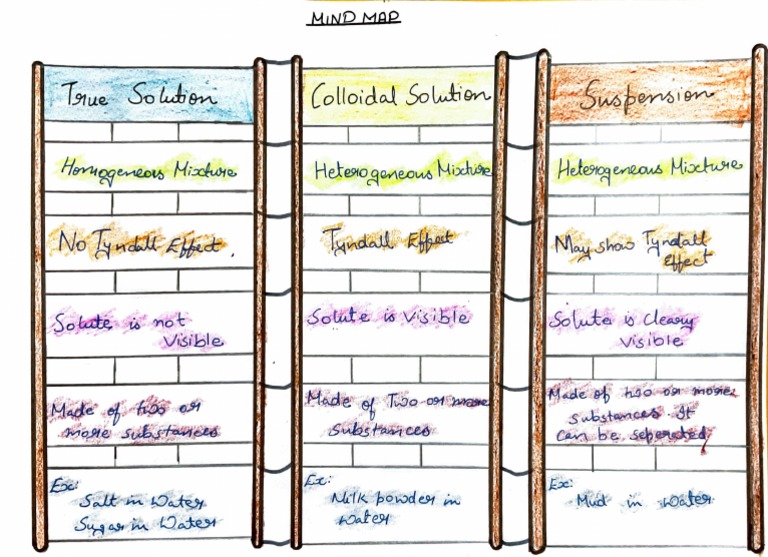 MIND MAP
True Solution
Homogeneous Mixture
No Tyndall Effect.
Solute is not
Visible
Made of two or
more substances
Ex:
Salt in Water
Sugar in Water
Colloidal Solution
Heterogeneous Mixture
Tyndall Effect
Solute is Visible
Made of Two or more
Substances
Ex:
Milk powder in
Water
Suspension
Heterogeneous Mixture
May show Tyndall
Effect
Solute is Cleary
Visible
Made of two or more
substances It
can be seperated
Ex:
Mud in water